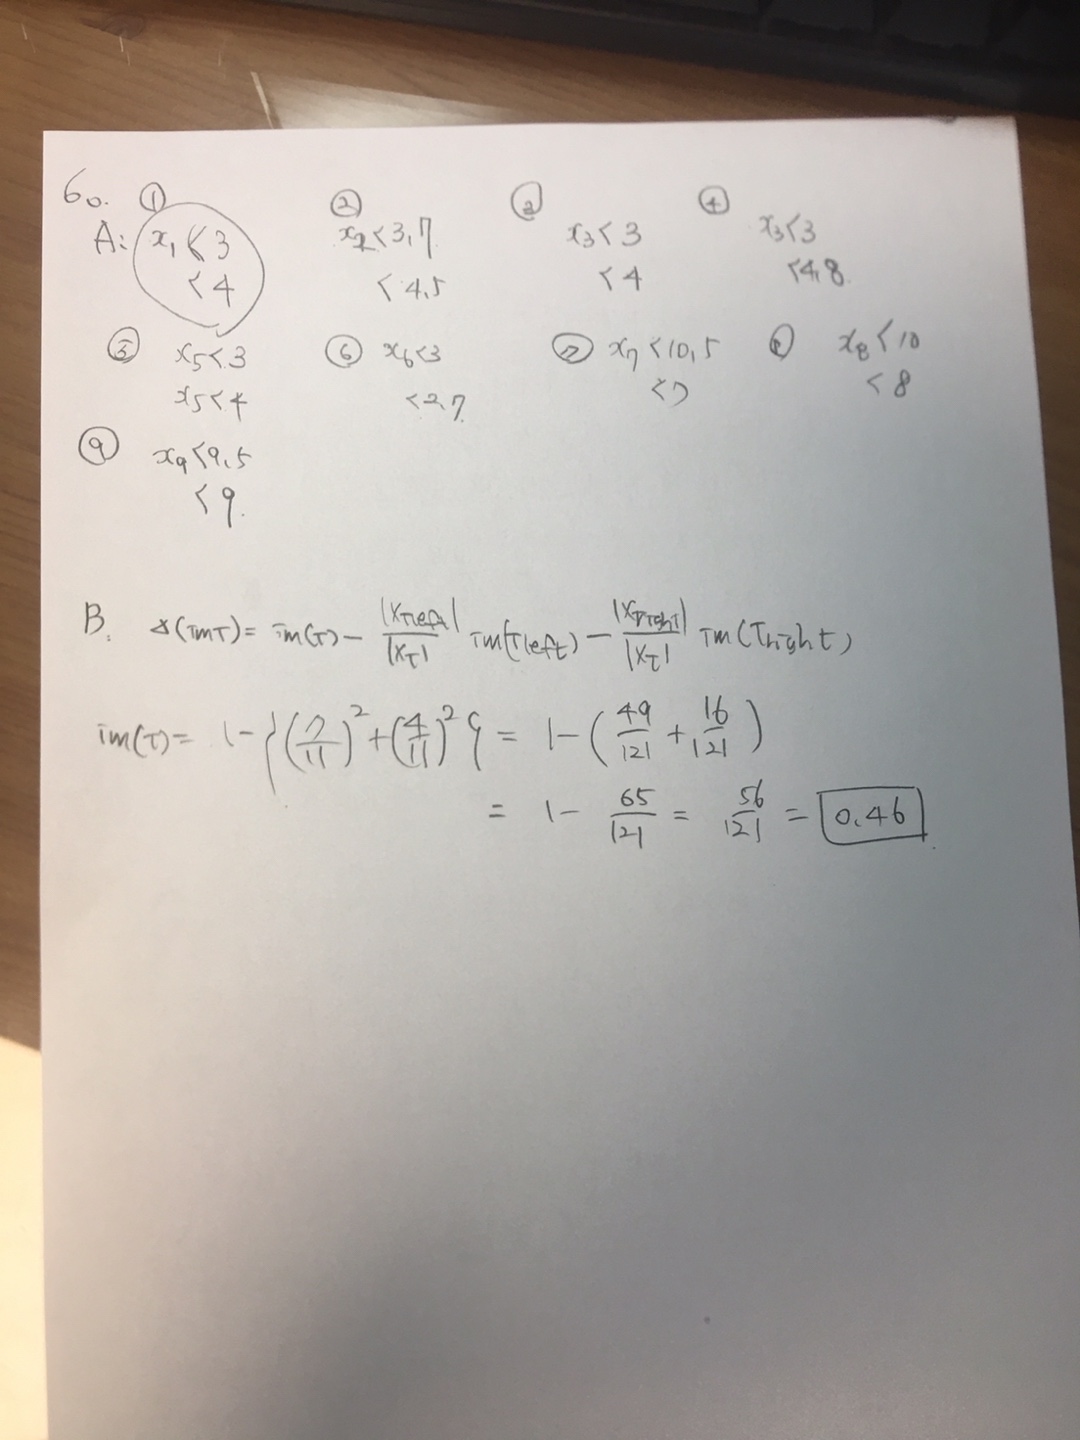 60. ① ② ③ ④
A: x₁<3 x₂<3,7 x₃<3 x₃<3
<4 <4,5 <4 <4,8.
⑤ x₅<3 ⑥ x₆<3 ⑦ x₇<10,5 x₈<10
x₅<4 <2,7. <7 <8
⑨ x₉<9,5
<9.
B. Δ(imT)= im(T) − |XTleft|/|XT| im(Tleft) − |XTright|/|XT| im(Tright)
im(T)= 1−{(7/11)²+(4/11)²} = 1−(49/121+16/121)
= 1− 65/121 = 56/121 = 0.46